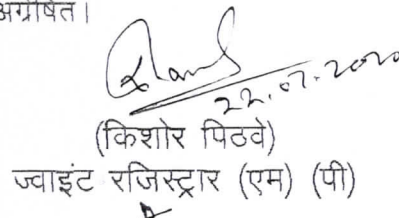 अग्रेषित।
22.07.2020
(किशोर पिठवे)
ज्वाइंट रजिस्ट्रार (एम) (पी)